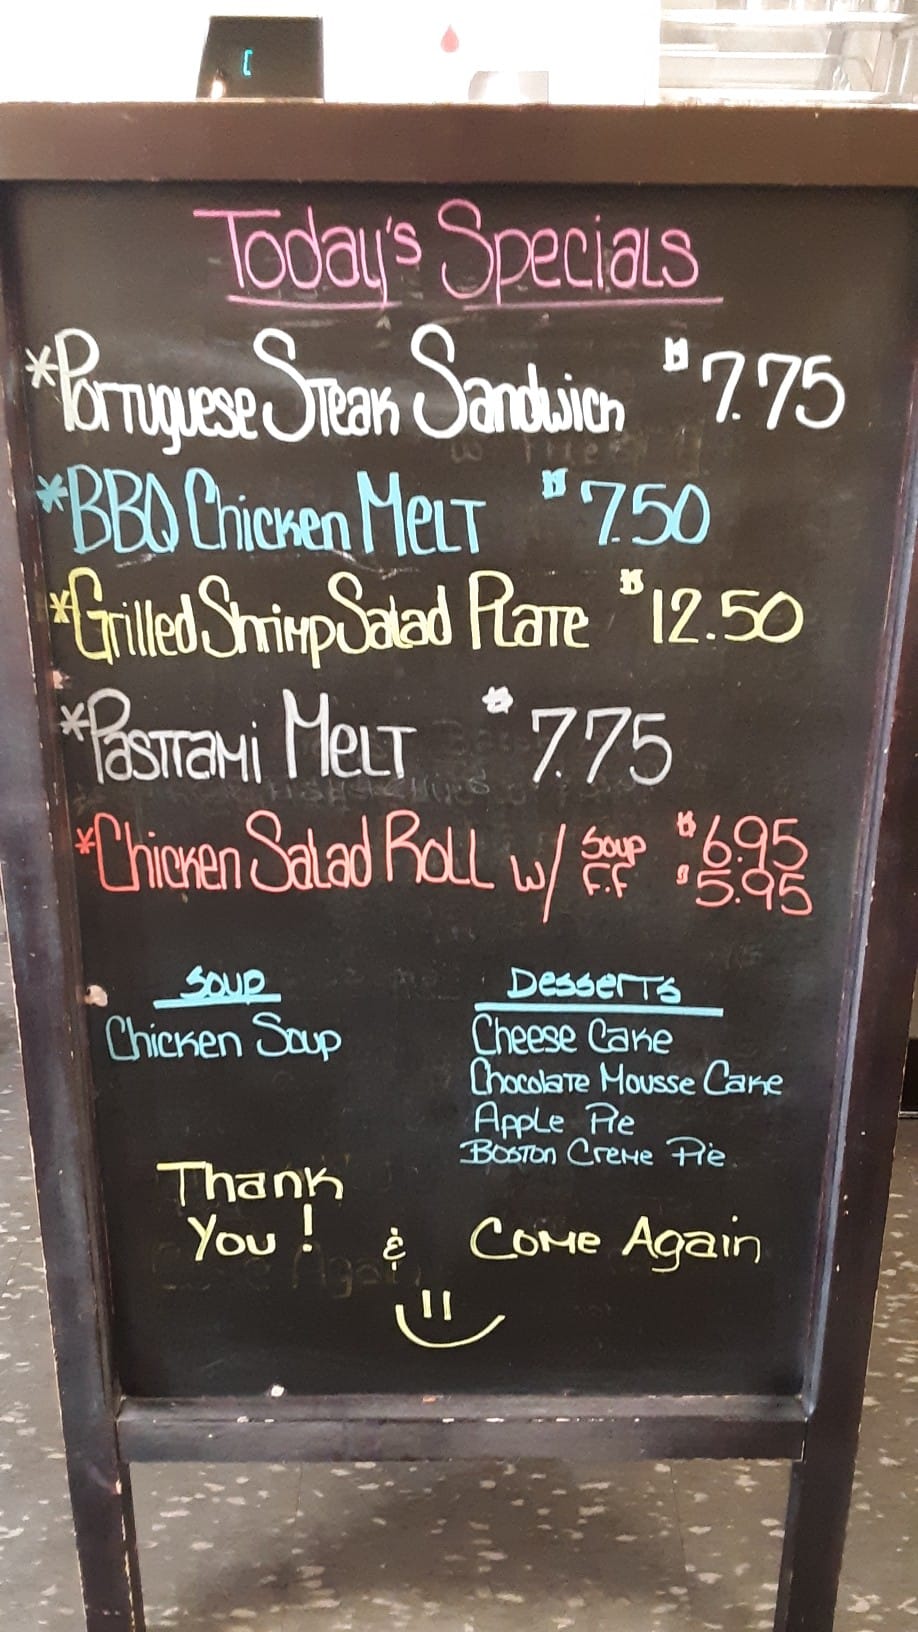 Today's Specials
*Portuguese Steak Sandwich $7.75
*BBQ Chicken Melt $7.50
*Grilled Shrimp Salad Plate $12.50
*Pastrami Melt $7.75
*Chicken Salad Roll w/ Soup $6.95
F.F $5.95
Soup
Chicken Soup
Desserts
Cheese Cake
Chocolate Mousse Cake
Apple Pie
Boston Creme Pie
Thank
You! & Come Again